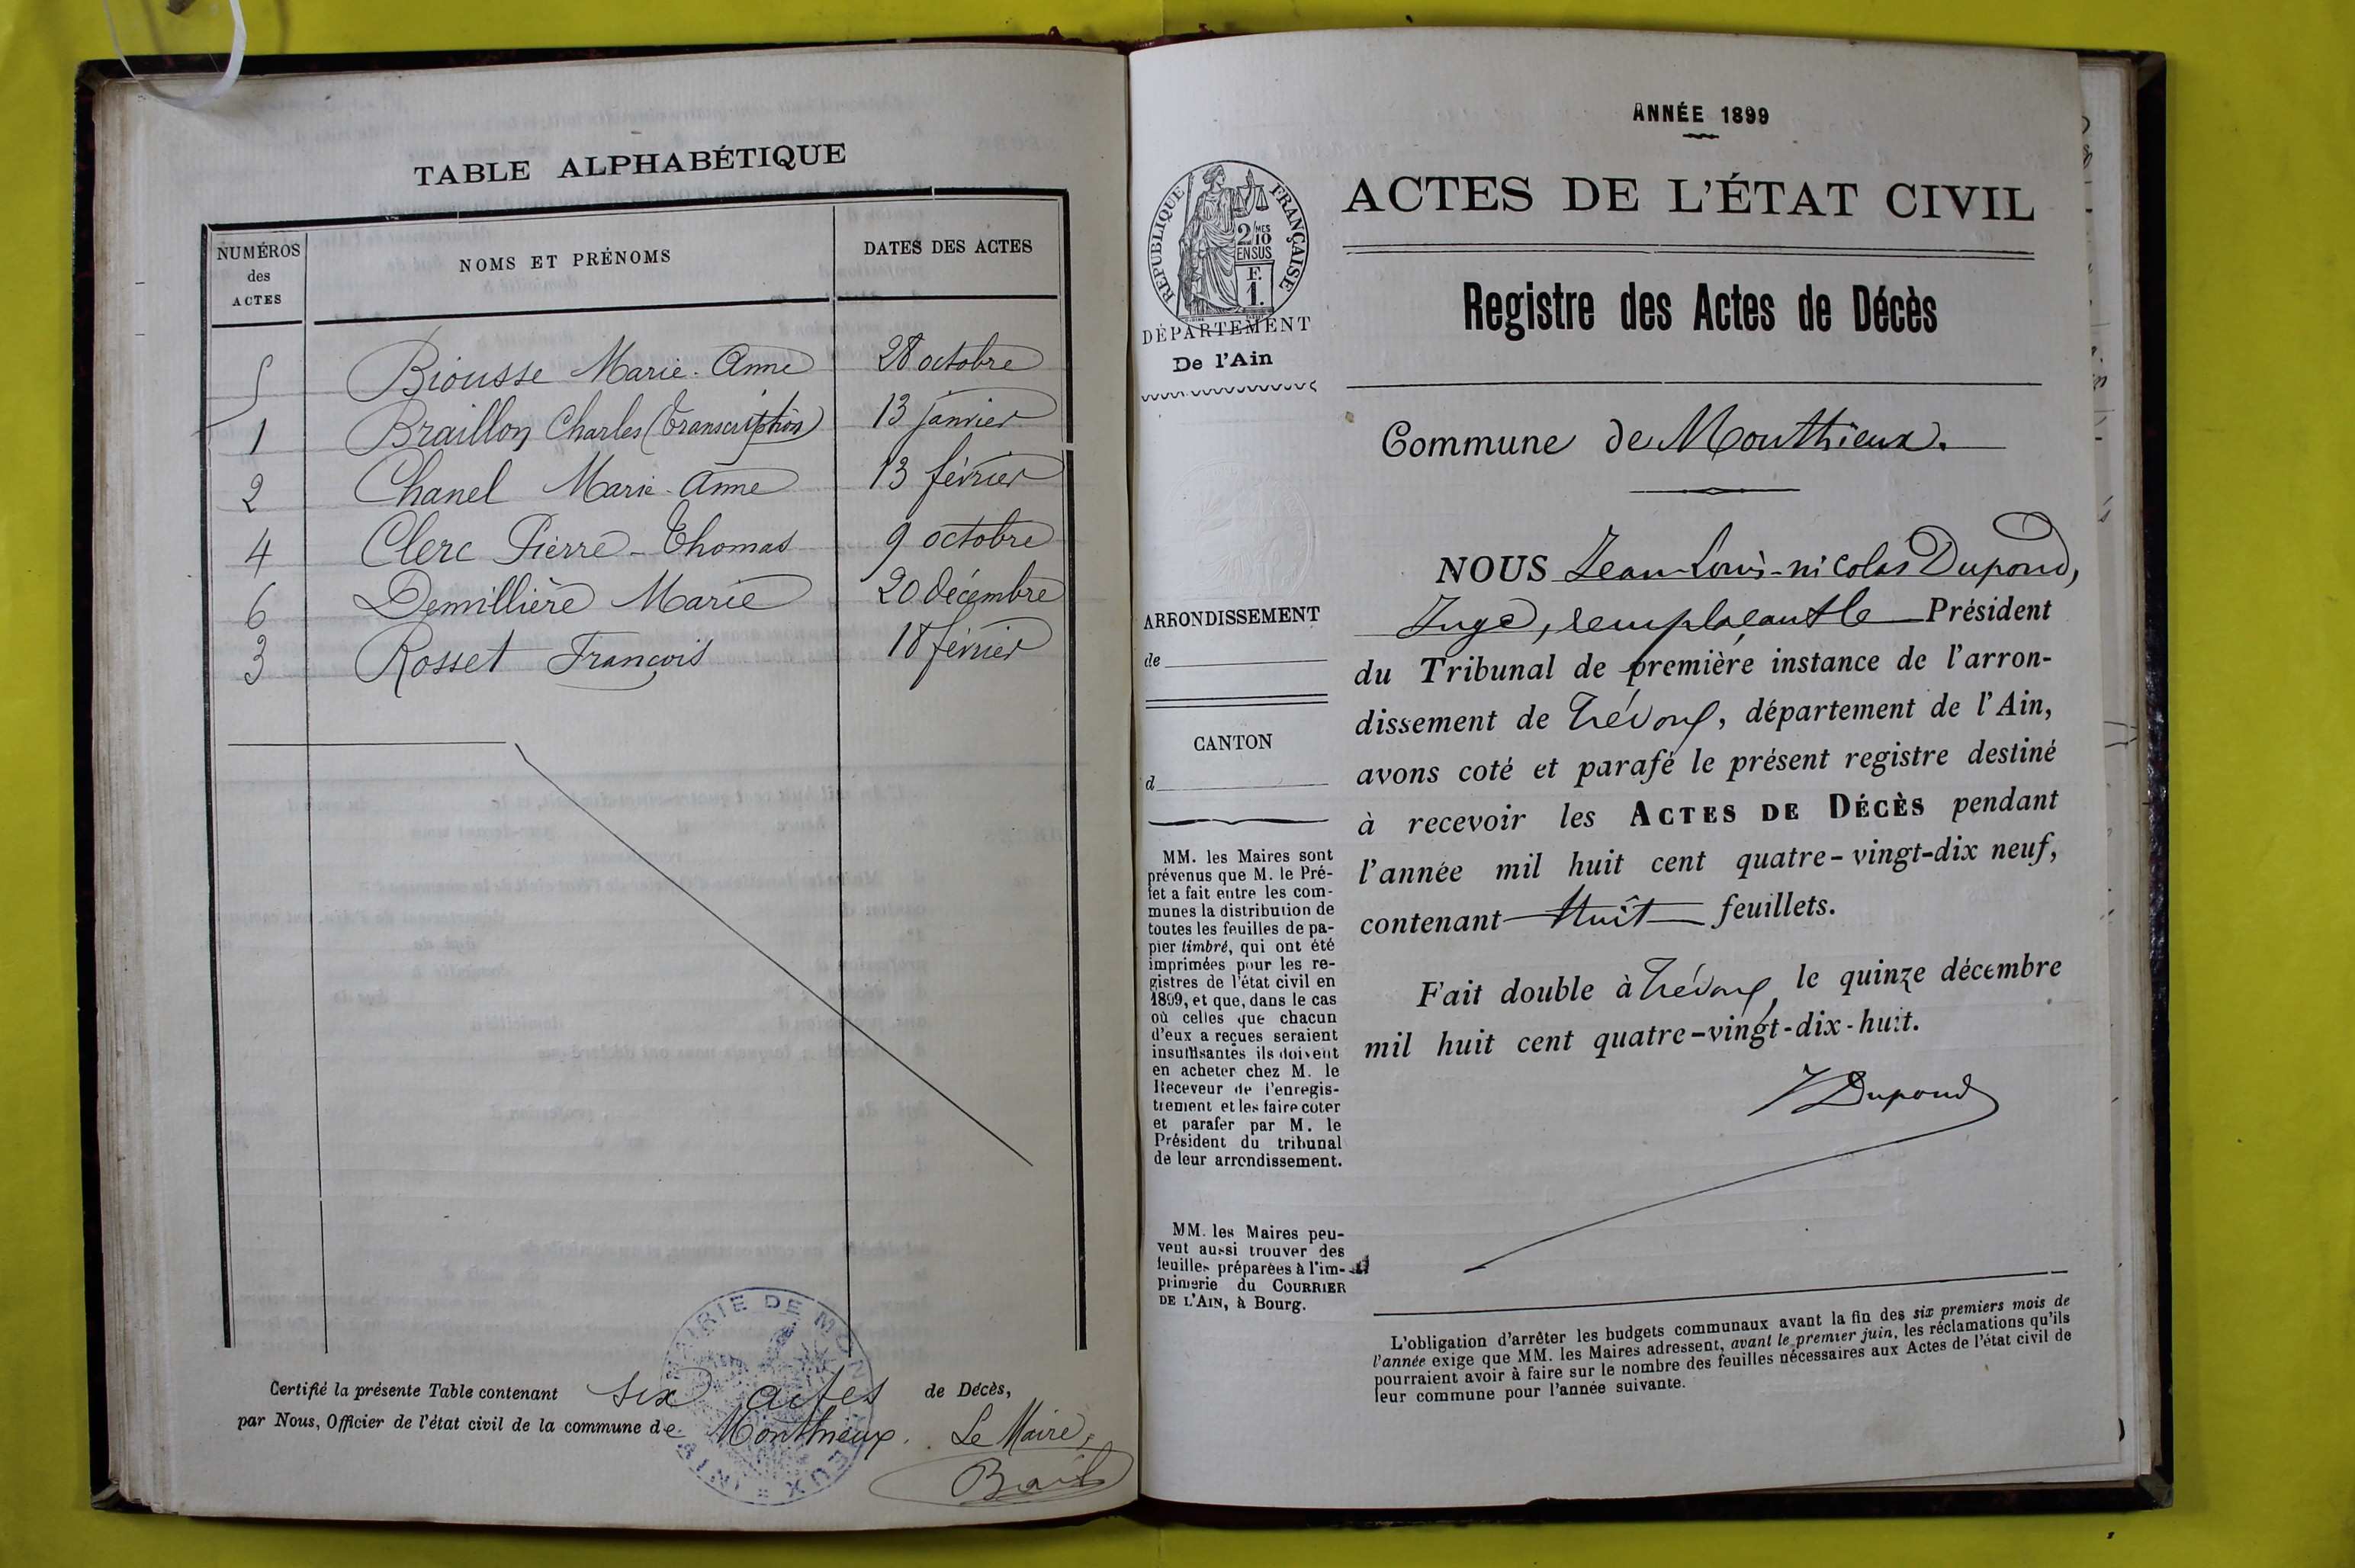 TABLE ALPHABÉTIQUE
NUMÉROS des ACTES
NOMS ET PRÉNOMS
DATES DES ACTES
5 Biousse Marie-Anne 28 octobre
1 Braillon Charles (Transcription) 13 janvier
2 Chanel Marie-Anne 13 février
4 Clerc Pierre-Thomas 9 octobre
6 Demillière Marie 20 décembre
3 Rosset François 18 février
Certifié la présente Table contenant six actes de Décès,
par Nous, Officier de l'état civil de la commune de Monthieux. Le Maire,
MAIRIE DE MONTHIEUX = AIN =
ANNÉE 1899
RÉPUBLIQUE FRANÇAISE
2/10 MES
EN SUS
F.
1.
ACTES DE L'ÉTAT CIVIL
Registre des Actes de Décès
DÉPARTEMENT
De l'Ain
Commune de Monthieux.
NOUS Jean-Louis-nicolas Dupond,
Juge, remplaçant le Président
du Tribunal de première instance de l'arron-
dissement de Trévoux, département de l'Ain,
avons coté et parafé le présent registre destiné
à recevoir les ACTES DE DÉCÈS pendant
l'année mil huit cent quatre-vingt-dix neuf,
contenant huit feuillets.
Fait double à Trévoux, le quinze décembre
mil huit cent quatre-vingt-dix-huit.
J Dupond
ARRONDISSEMENT
de
CANTON
d
MM. les Maires sont
prévenus que M. le Pré-
fet a fait entre les com-
munes la distribution de
toutes les feuilles de pa-
pier timbré, qui ont été
imprimées pour les re-
gistres de l'état civil en
1899, et que, dans le cas
où celles que chacun
d'eux a reçues seraient
insuffisantes ils doivent
en acheter chez M. le
Receveur de l'enregis-
trement et les faire coter
et parafer par M. le
Président du tribunal
de leur arrondissement.
MM. les Maires peu-
vent aussi trouver des
feuilles préparées à l'im-
primerie du COURRIER
DE L'AIN, à Bourg.
L'obligation d'arrêter les budgets communaux avant la fin des six premiers mois de
l'année exige que MM. les Maires adressent, avant le premier juin, les réclamations qu'ils
pourraient avoir à faire sur le nombre des feuilles nécessaires aux Actes de l'état civil de
leur commune pour l'année suivante.